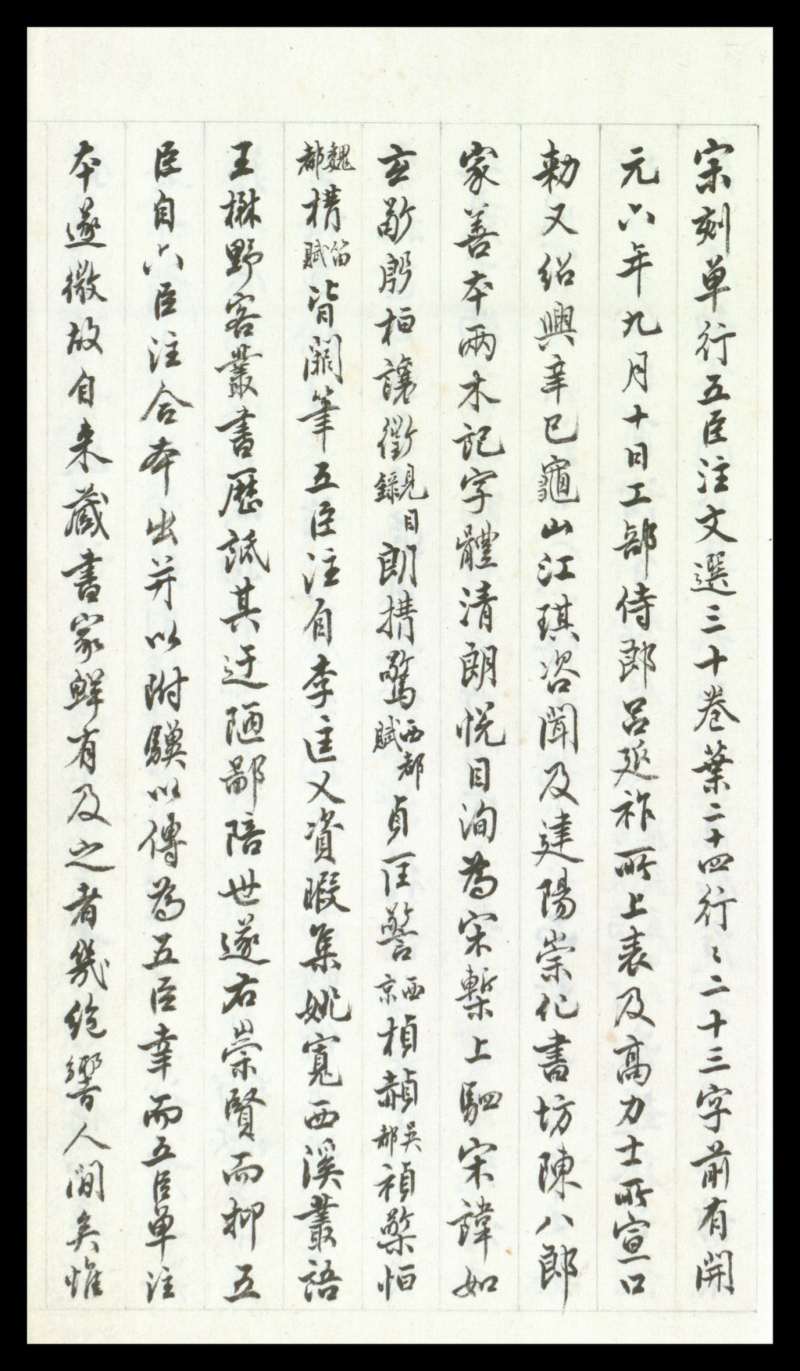 宋刻单行五臣注文選三十卷葉二十四行〻二十三字前有開
元六年九月十日工部侍郎呂延祚所上表及高力士所宣口
勅又紹興辛巳龜山江琪咨聞及建陽崇化書坊陳八郎
家善本兩木記字體清朗悦目洵為宋槧上駟宋諱如
玄敬殷桓讓徵見目錄朗搆驚西都賦貞匡警西京楨赬吳都禎檠恒
魏都構笛賦皆闕筆五臣注自李匡乂資暇集姚寬西溪叢語
王楙野客叢書歷詆其迂陋鄙陪世遂右崇賢而抑五
臣自六臣注合本出并以附驥以傳為五臣幸而五臣单注
本遂微故自来藏書家鮮有及之者幾絶響人間矣惟